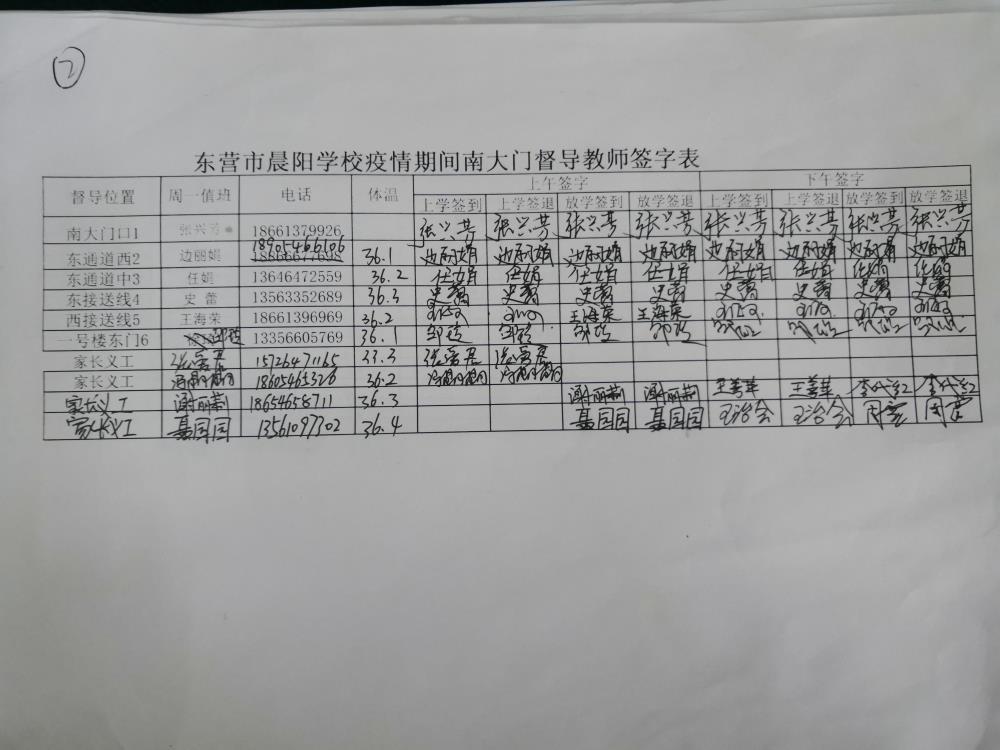 2
东营市晨阳学校疫情期间南大门督导教师签字表
督导位置 周一值班 电话 体温 上午签字 下午签字
上学签到 上学签退 放学签到 放学签退 上学签到 上学签退 放学签到 放学签退
南大门口1 张兴芳 18661379926 张兴芳 张兴芳 张兴芳 张兴芳 张兴芳 张兴芳 张兴芳 张兴芳
18905466106
东通道西2 边丽娟 18866677698 36.1 边丽娟 边丽娟 边丽娟 边丽娟 边丽娟 边丽娟 边丽娟 边丽娟
东通道中3 任娟 13646472559 36.2 任娟 任娟 任娟 任娟 任娟 任娟 任娟 任娟
东接送线4 史蕾 13563352689 36.3 史蕾 史蕾 史蕾 史蕾 史蕾 史蕾 史蕾 史蕾
西接送线5 王海荣 18661396969 36.2 王海荣 王海荣
一号楼东门6 13356605769 36.1
家长义工 15726471165 33.3
家长义工 18605465326 36.2
家长义工 谢丽莉 18654658711 36.3 谢丽莉 谢丽莉 王善华 王善华
家长义工 聂园园 13561097302 36.4 聂园园 聂园园 王治会 王治会